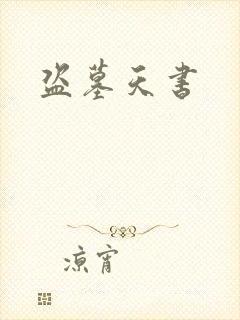 盗墓天书
凉宵